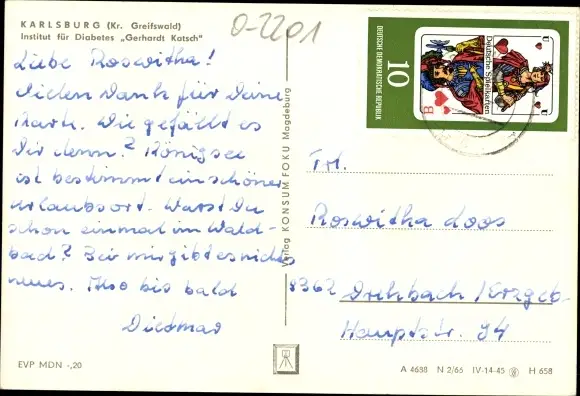 KARLSBURG (Kr. Greifswald)
Institut für Diabetes „Gerhardt Katsch"
O-2201
Liebe Roswitha!
Vielen Dank für Deine
Karte. Wie gefällt es
Dir denn? Königsee
ist bestimmt ein schöner
Urlaubsort. Warst Du
schon einmal im Wald-
bad? Bei mir gibt es nichts
neues. Also bis bald
Dietmar
EVP MDN -,20
Verlag KONSUM FOKU Magdeburg
DEUTSCHE DEMOKRATISCHE REPUBLIK
10
Deutsche Spielkarten
B
U
U
U
Frl.
Roswitha Loos
9362 Drehbach / Erzgeb.
Hauptstr. 94
A 4688 N 2/66 IV-14-45 H 658